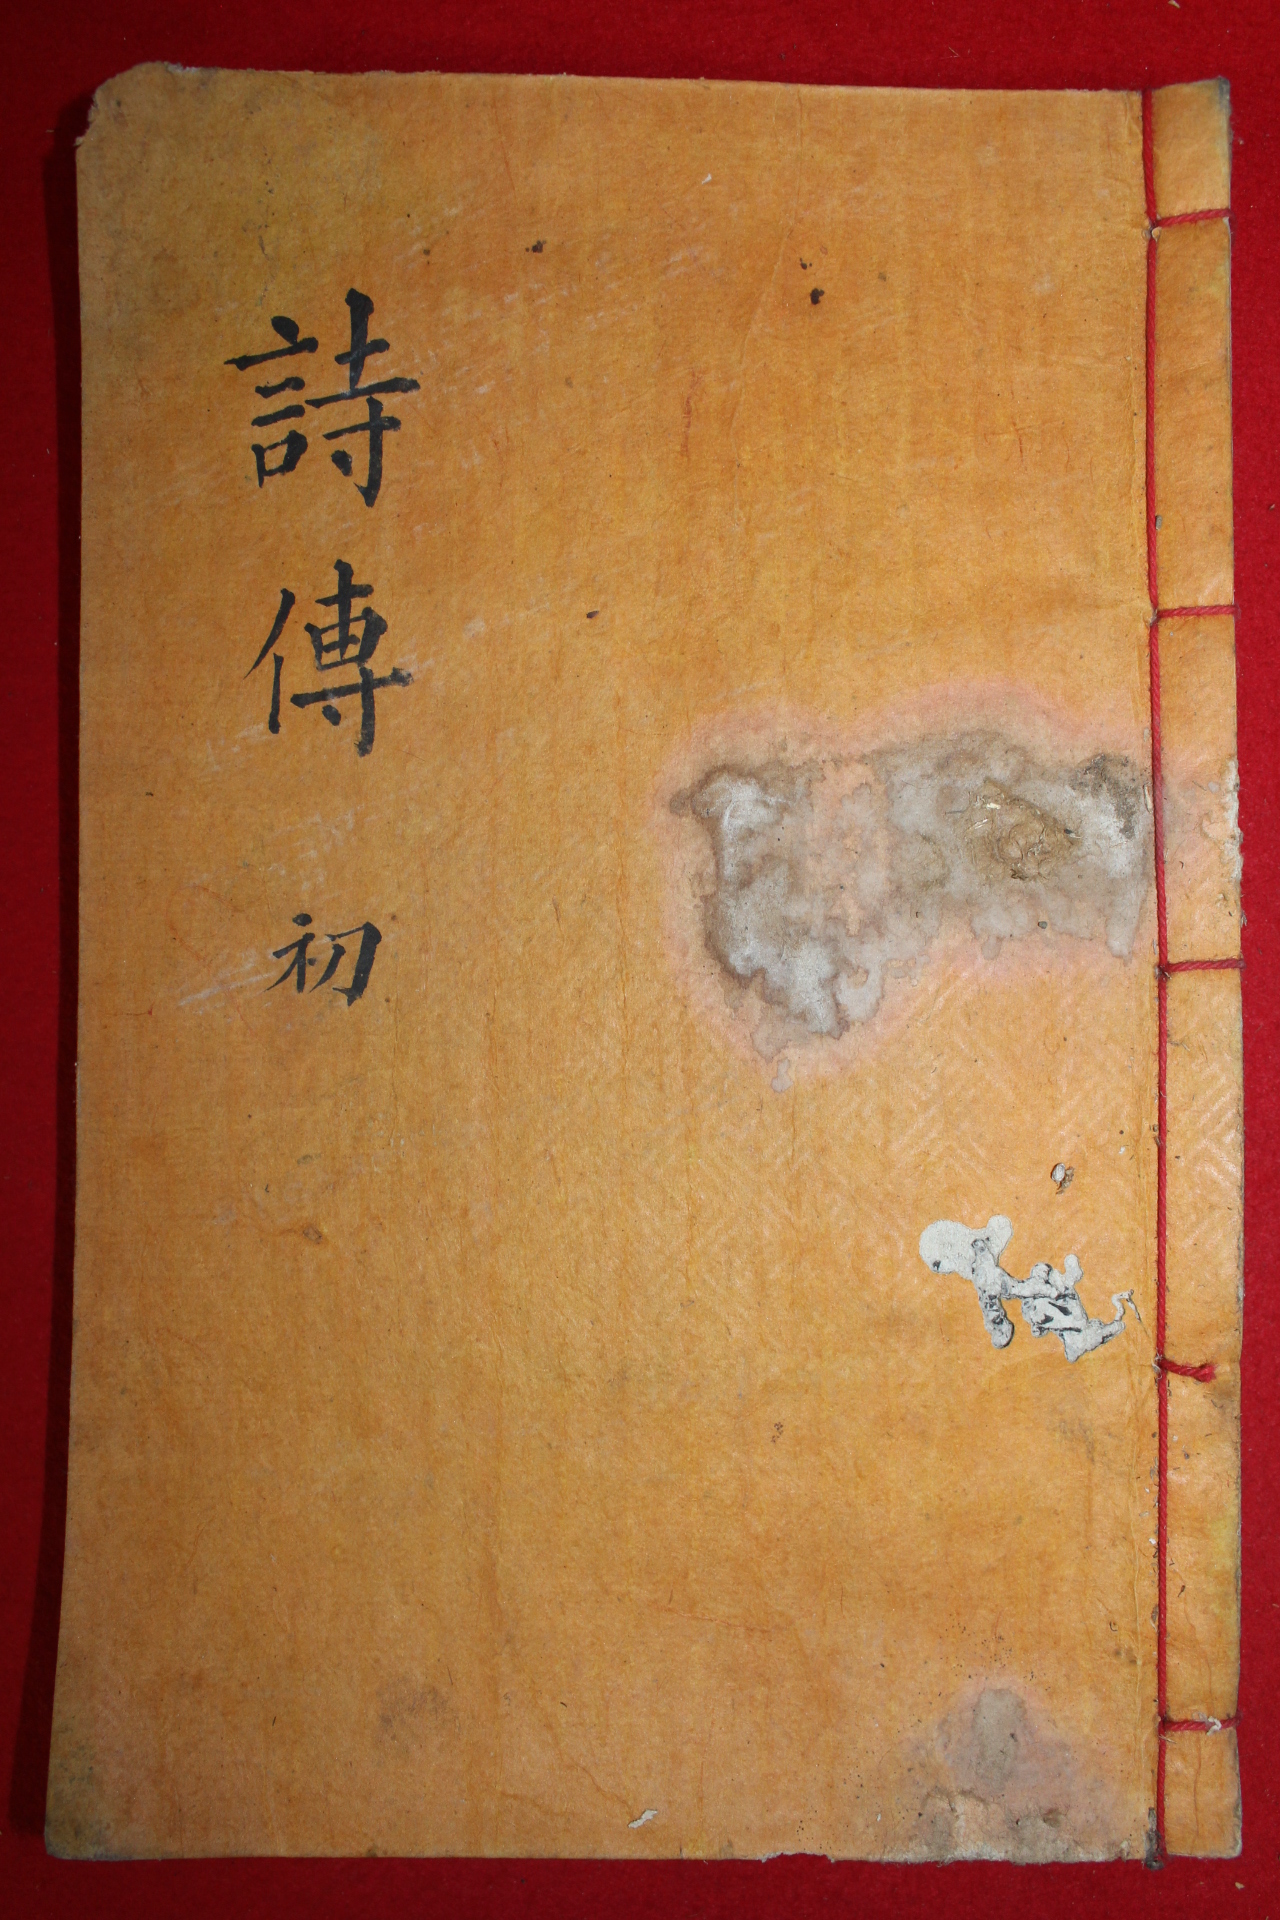 詩傳 初